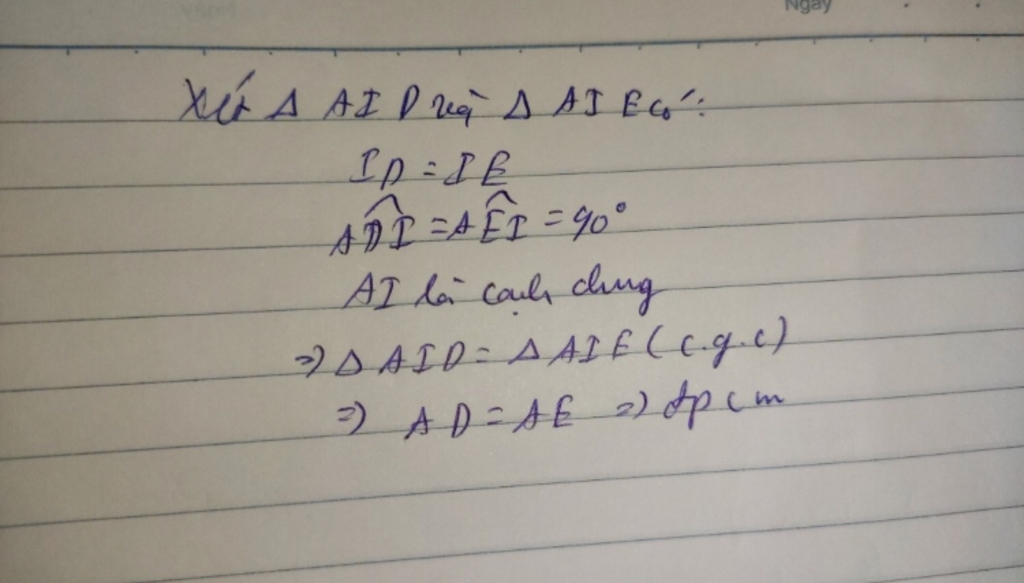 Ngày
Xét Δ AID và Δ AIE có:
ID = IE
ADI = AEI = 90°
AI là cạnh chung
=> Δ AID = Δ AIE (c.g.c)
=> AD = AE => đpcm